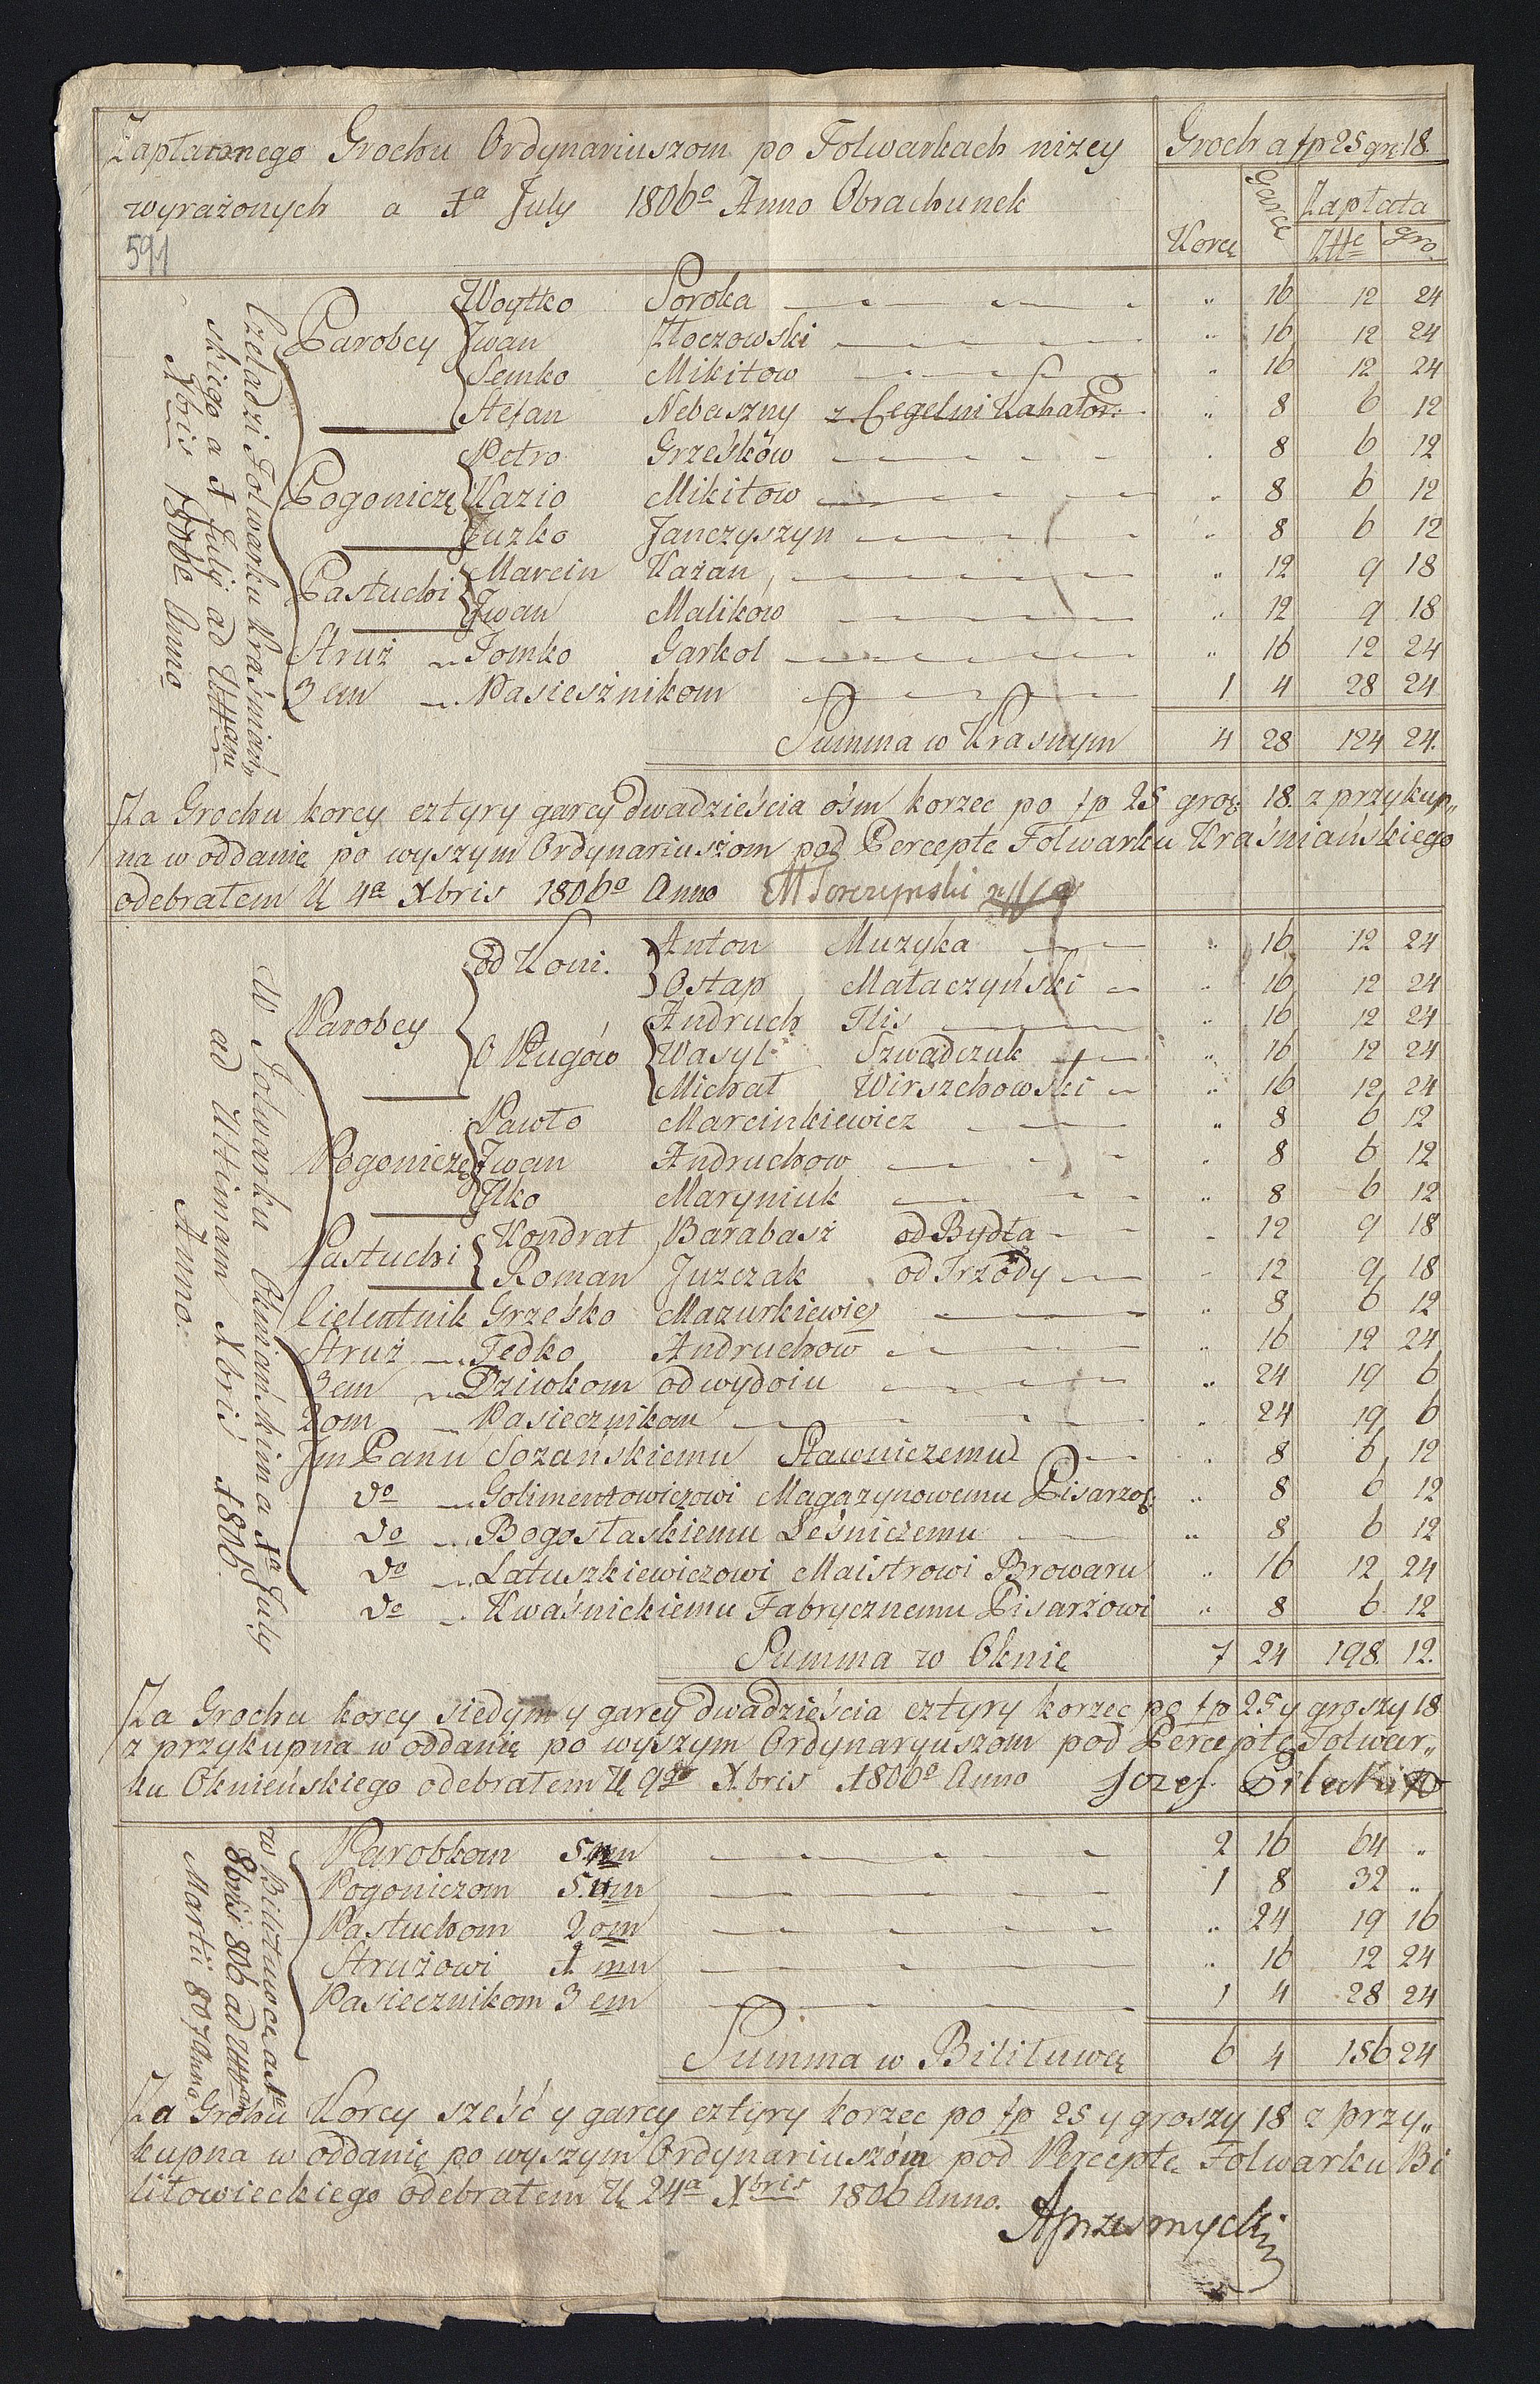 Zapłaconego Grochu Ordynariuszom po Folwarkach niżey
wyrażonych a 1a July 1806o Anno Obrachunek
591
Groch a fp 25 gr: 18.
Korcę Garcę Zapłata
Złłe Gro.
Czeladzi Folwarku Kraśniań,,
skiego a 1 July ad Ultimam
Xbris 1806o Anno
Parobcy Woytko Soroka „ 16 12 24
Jwan Złoczowski „ 16 12 24
Semko Mikitow „ 16 12 24
Stefan Nebeszny z Cegelni Kahalow: „ 8 6 12
Pogoniczę Petro Grześków „ 8 6 12
Kazio Mikitow „ 8 6 12
Juzko Janczyszyn „ 8 6 12
Pastuchi Marcin Kazan „ 12 9 18
Jwan Malików „ 12 9 18
Struż Tomko Garkol „ 16 12 24
3 em Pasiesznikom 1 4 28 24
Summa w Krasnym 4 28 124 24.
Za Grochu korcy cztyry garcy dwadzieścia ośm korzec po fp 25 grog: 18. z przykup,,
na w oddanię po wyszym Ordynariuszom pod Perceptę Folwarku Kraśniańskiego
odebrałem d 4a Xbris 1806o Anno
W Folwarku Oknianskim a 1a July
ad Ultimam Xbris 1806.
Anno.
Parobcy od Koni. Anton Muzyka „ 16 12 24
Ostap Małaczyński „ 16 12 24
O Pługów Andruch Ilis „ 16 12 24
Wasyl Szwadczuk „ 16 12 24
Michał Wirszchowski „ 16 12 24
Pogoniczę Pawło Marcinkiewicz „ 8 6 12
Jwan Andruchow „ 8 6 12
Ilko Maryniuk „ 8 6 12
Pastuchi Kondrat Barabasz od Bydła „ 12 9 18
Roman Juzczak od Trzody „ 12 9 18
Cielentnik Grześko Mazurkiewicz „ 8 6 12
Struż Fedko Andruchow „ 16 12 24
3 em Dziwkom od wydoiu „ 24 19 6
2 om Pasiecznikom „ 24 19 6
Jm Panu Sozańskiemu Stawniczemu „ 8 6 12
do Golimentowiczowi Magazynowemu Pisarzo: „ 8 6 12
do Bogosłaskiemu Leśniczemu „ 8 6 12
do Łatuszkiewiczowi Maistrowi Browaru „ 16 12 24
do Kwaśnickiemu Fabrycznemu Pisarzowi „ 8 6 12
Summa w Oknię 7 24 198. 12.
Za Grochu korcy siedym y garcy dwadzieścia cztyry korzec po fp 25 y groszy 18
z przykupna w oddanię po wyszym Ordynaryuszom pod Perceptę Folwar,,
ku Oknieńskiego odebrałem d 9go Xbris 1806o Anno Jozef Pilecki
w Bilituwce a 1a
8bris 806 ad Ultimam
Martii 807 Anno
Parobkom 5. um 2 16 64 „
Pogoniczom 5. um 1 8 32 „
Pastuchom 2 om „ 24 19 16
Strużowi 1 mu „ 16 12 24
Pasiecznikom 3 em 1 4 28 24
Summa w Bilituwcę 6 4 156 24
Za Grochu Korcy sześć y garcy cztyry korzec po fp 25 y groszy 18 z przy,,
kupna w oddanię po wyszym Ordynariuszóm pod Perceptę Folwarku Bi
litowieckiego odebrałem d 24a Xbris 1806 Anno.